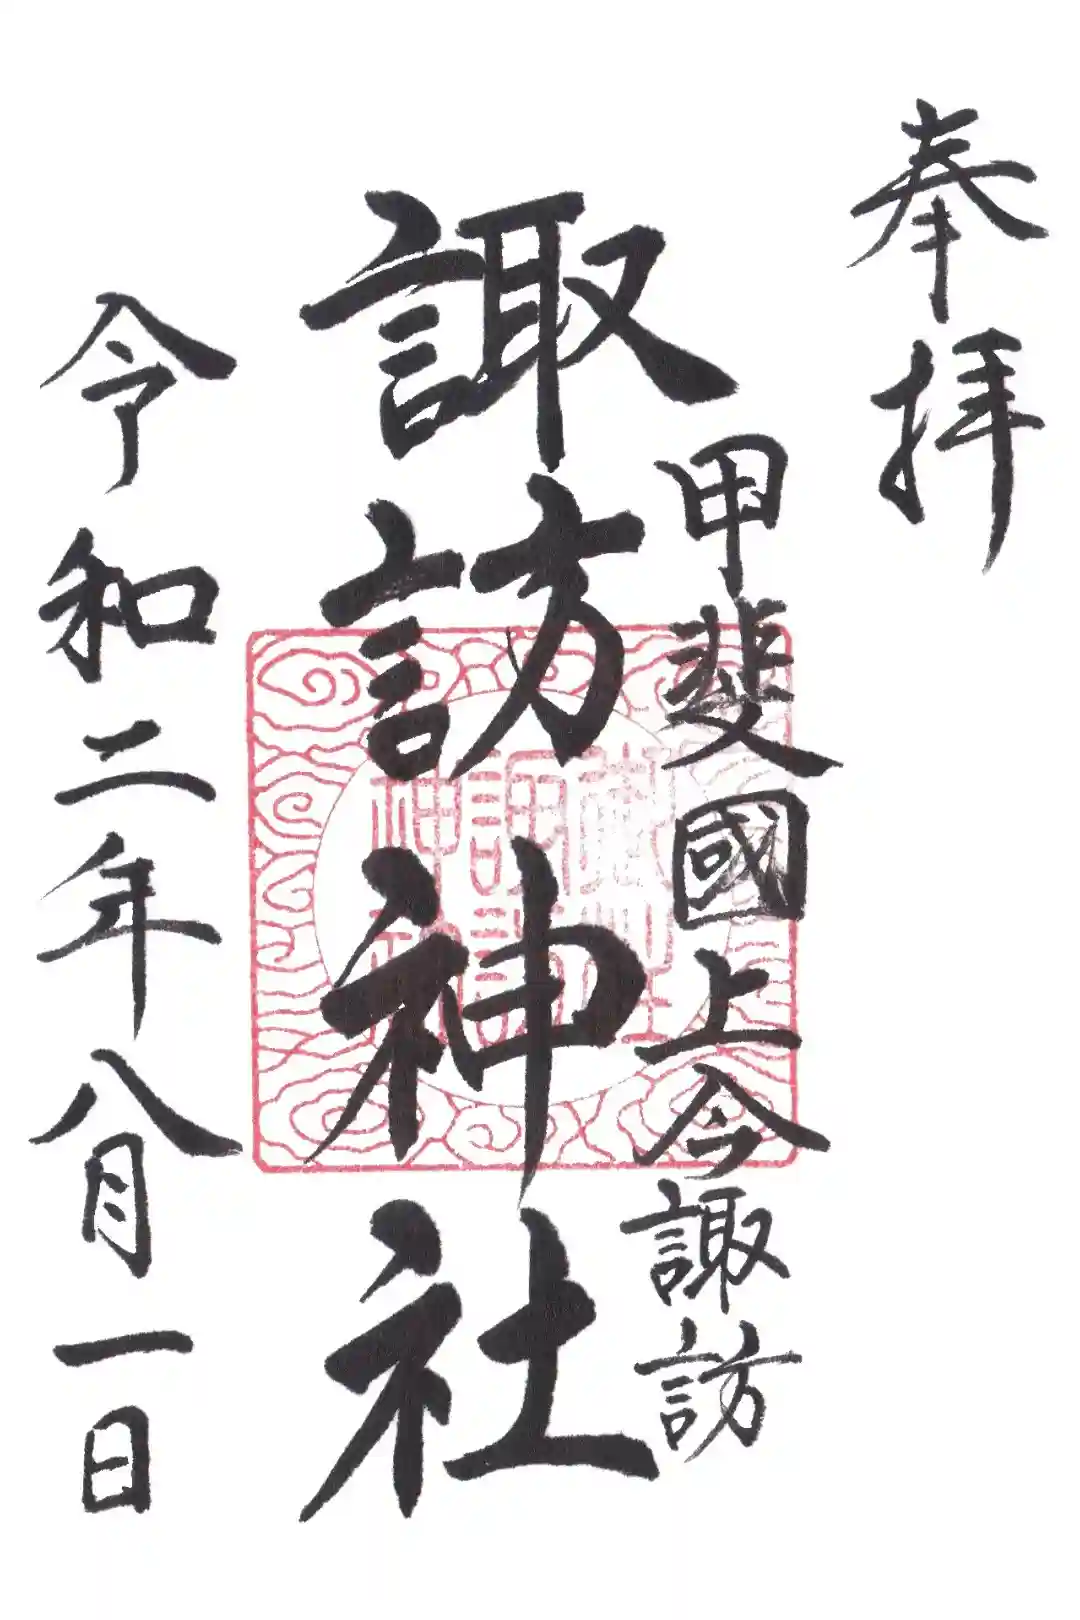 奉拝
甲斐國上今諏訪
諏訪神社
令和二年八月一日